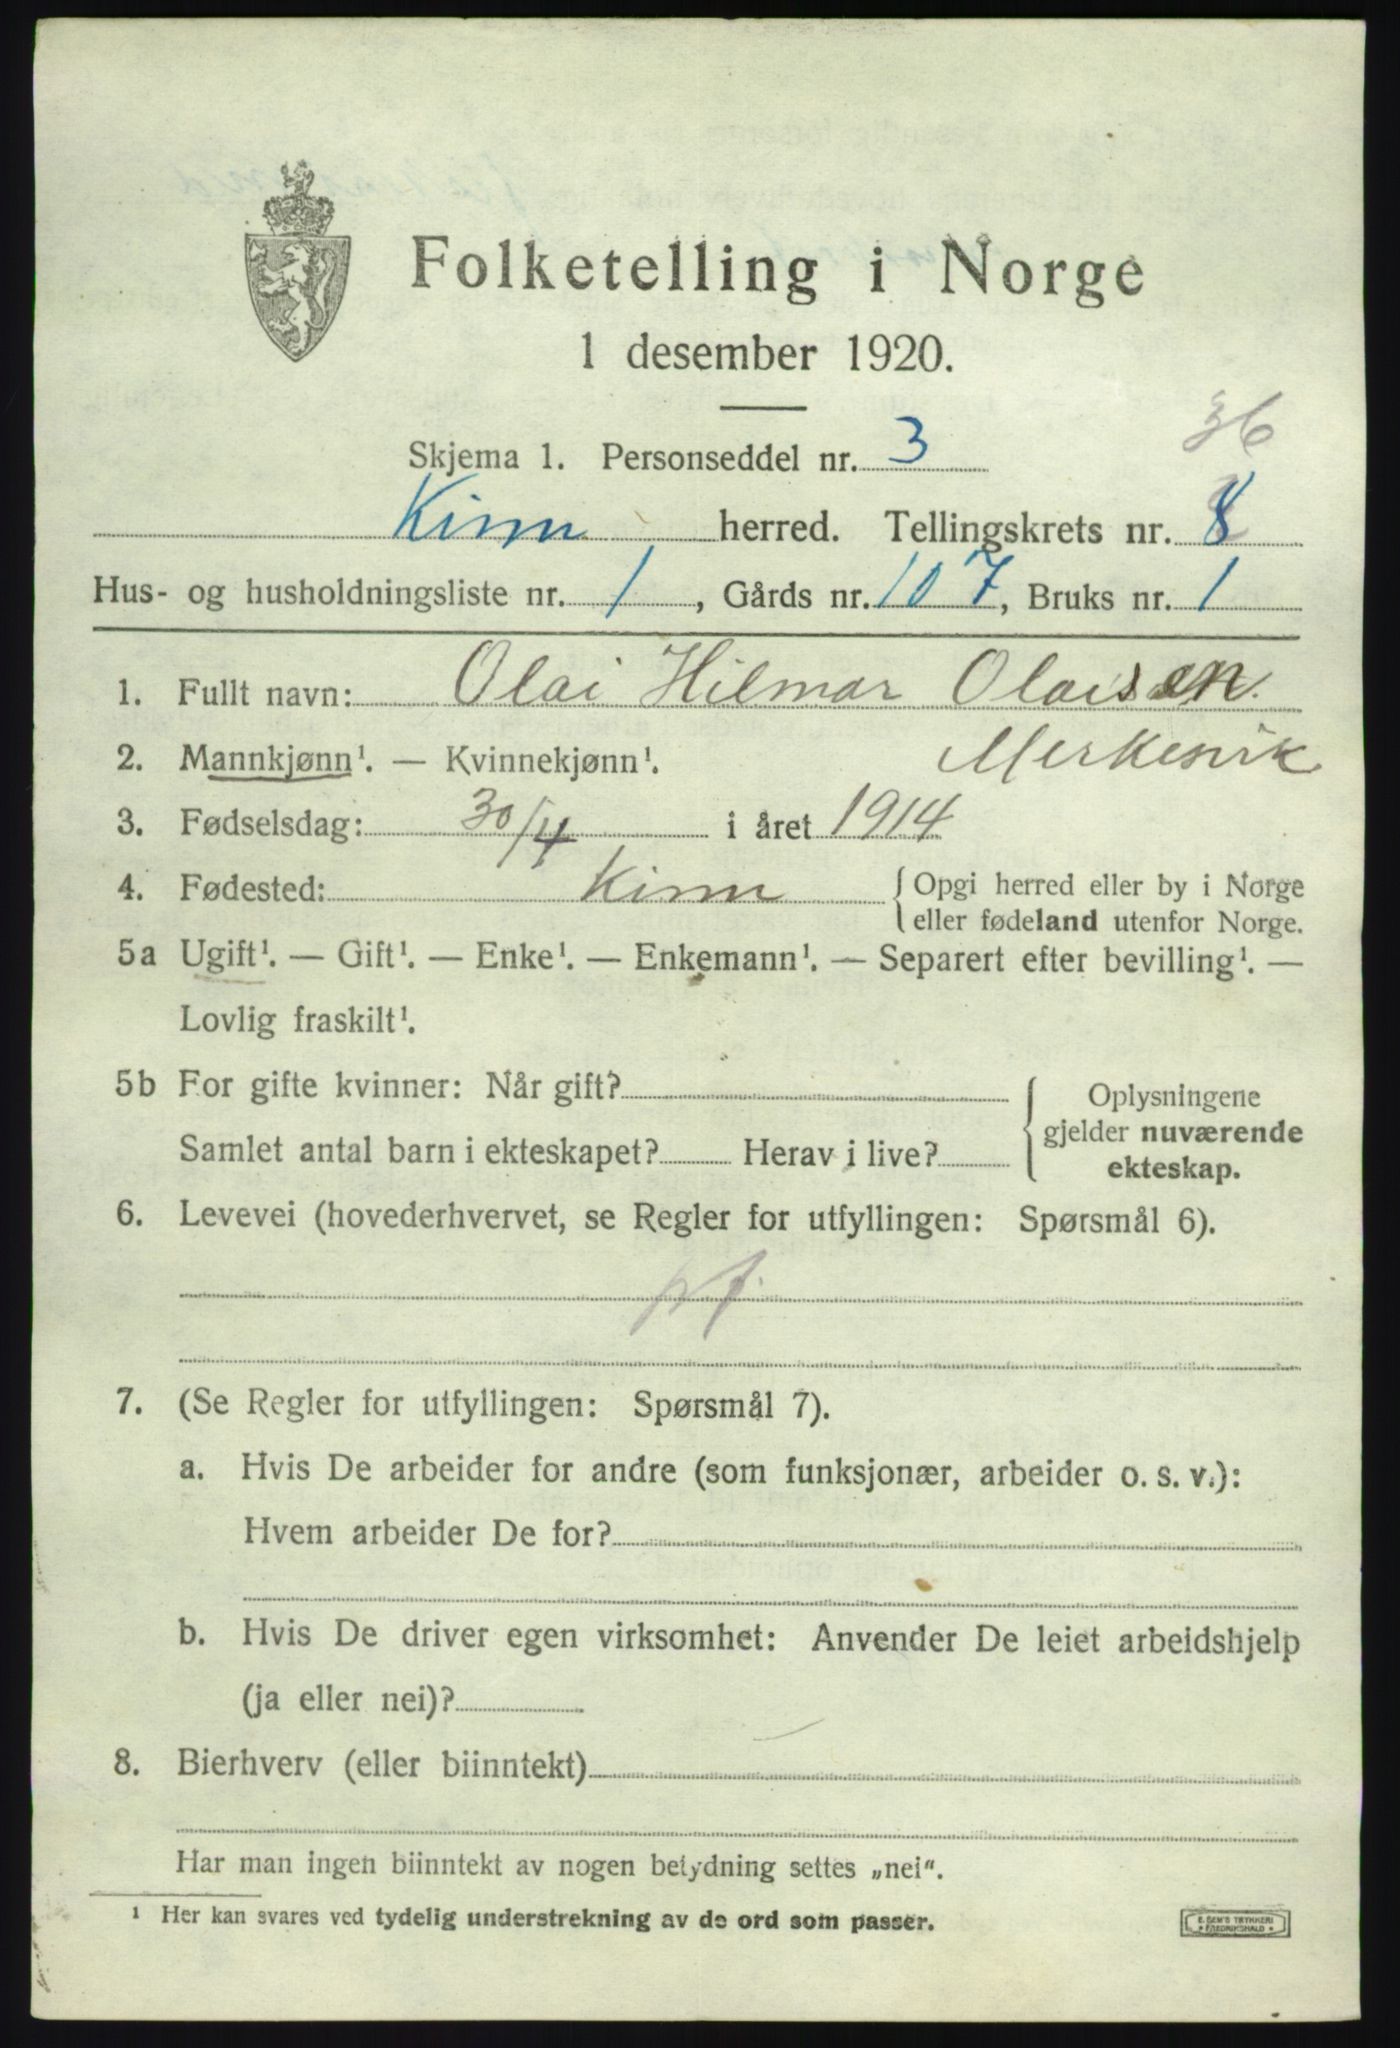 Folketelling i Norge
1 desember 1920.
36
Skjema 1. Personseddel nr. 3
Kinn herred. Tellingskrets nr. 8
Hus- og husholdningsliste nr. 1, Gårds nr. 107, Bruks nr. 1
1. Fullt navn: Olai Hilmar Olaisen
Merkesvik
2. Mannkjønn¹. — Kvinnekjønn¹.
3. Fødselsdag: 30/4 i året 1914
4. Fødested: Kinn { Opgi herred eller by i Norge
eller fødeland utenfor Norge.
5a Ugift¹. — Gift¹. — Enke¹. — Enkemann¹. — Separert efter bevilling¹. —
Lovlig fraskilt¹.
5b For gifte kvinner: Når gift?
Samlet antal barn i ekteskapet? Herav i live?
{ Oplysningene
gjelder nuværende
ekteskap.
6. Levevei (hovederhvervet, se Regler for utfyllingen: Spørsmål 6).
7. (Se Regler for utfyllingen: Spørsmål 7).
a. Hvis De arbeider for andre (som funksjonær, arbeider o. s. v.):
Hvem arbeider De for?
b. Hvis De driver egen virksomhet: Anvender De leiet arbeidshjelp
(ja eller nei)?
8. Bierhverv (eller biinntekt)
Har man ingen biinntekt av nogen betydning settes „nei“.
¹ Her kan svares ved tydelig understrekning av de ord som passer.
E. SEM'S TRYKKERI
* FREDRIKSHALD *